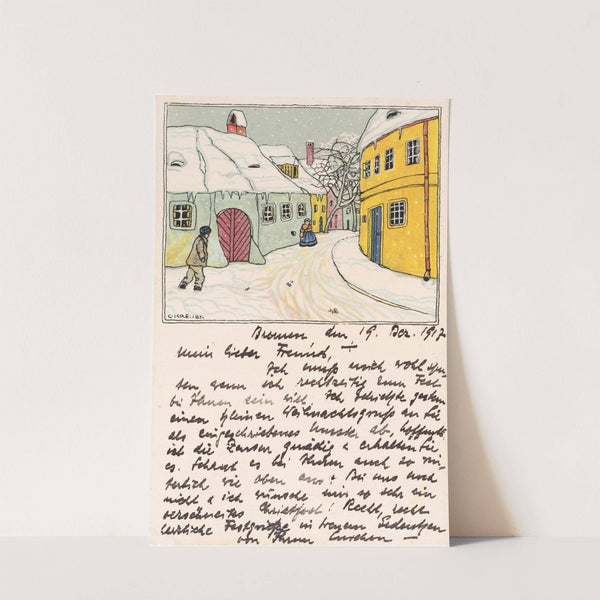 C.KREJCI.
Bremen den 19. Dez. 1917
Mein lieber Freund,
Ich muß mich wohl
wenn ich rechtzeitig zum Fest
bei Ihnen sein will. Ich schickte gestern
einen kleinen Weihnachtsgruß an Sie
als eingeschriebenes Muster ab, hoffentl.
ist die Zensur gnädig & erhalten Sie
es. Schaut es bei Ihnen auch so win
terlich wie oben aus? Bei uns noch
nicht & ich wünsche mir so sehr ein
verschneites Christfest! Recht, recht
herzliche Festgrüße in treuem Gedenken
von Ihrem